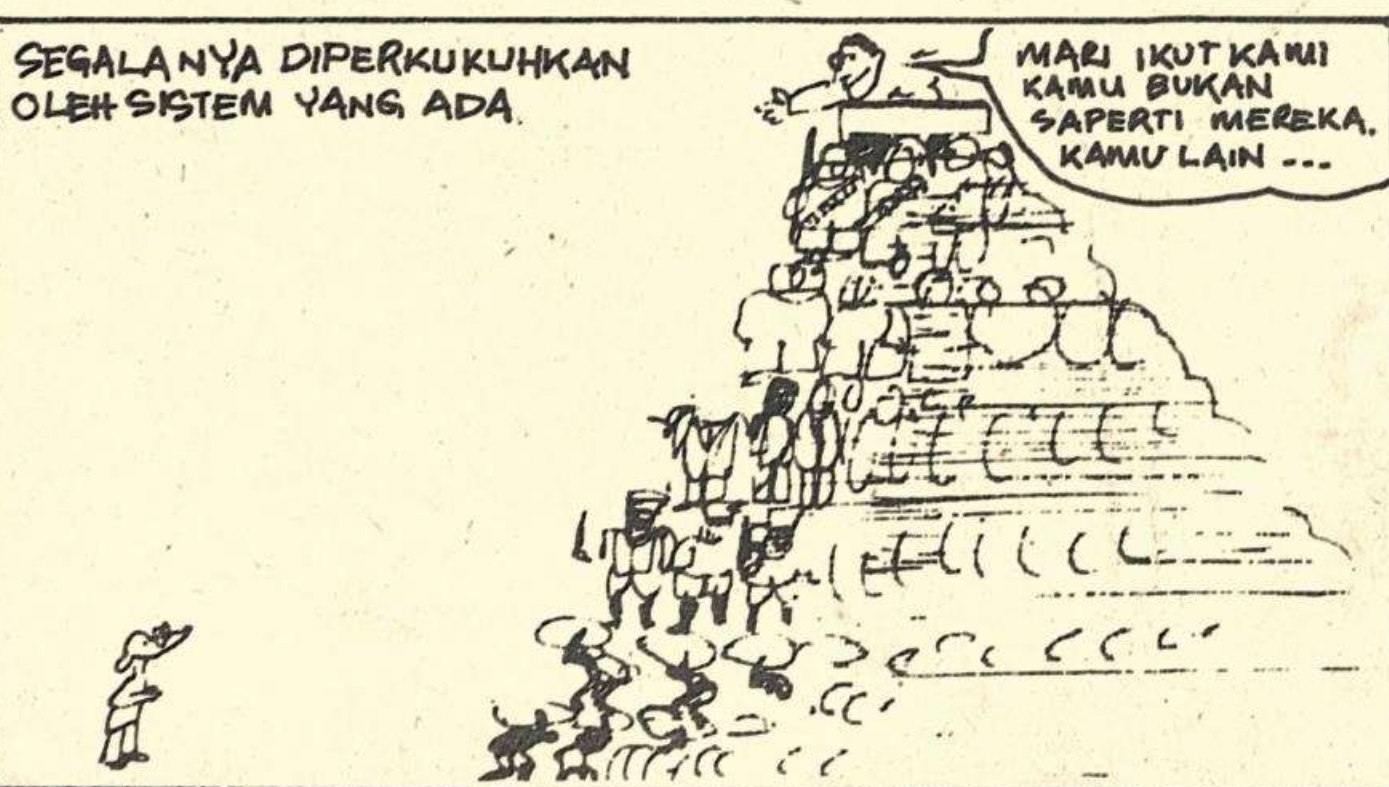 SEGALANYA DIPERKUKUHKAN
OLEH SISTEM YANG ADA.
MARI IKUT KAMI
KAMU BUKAN
SAPERTI MEREKA.
KAMU LAIN ...